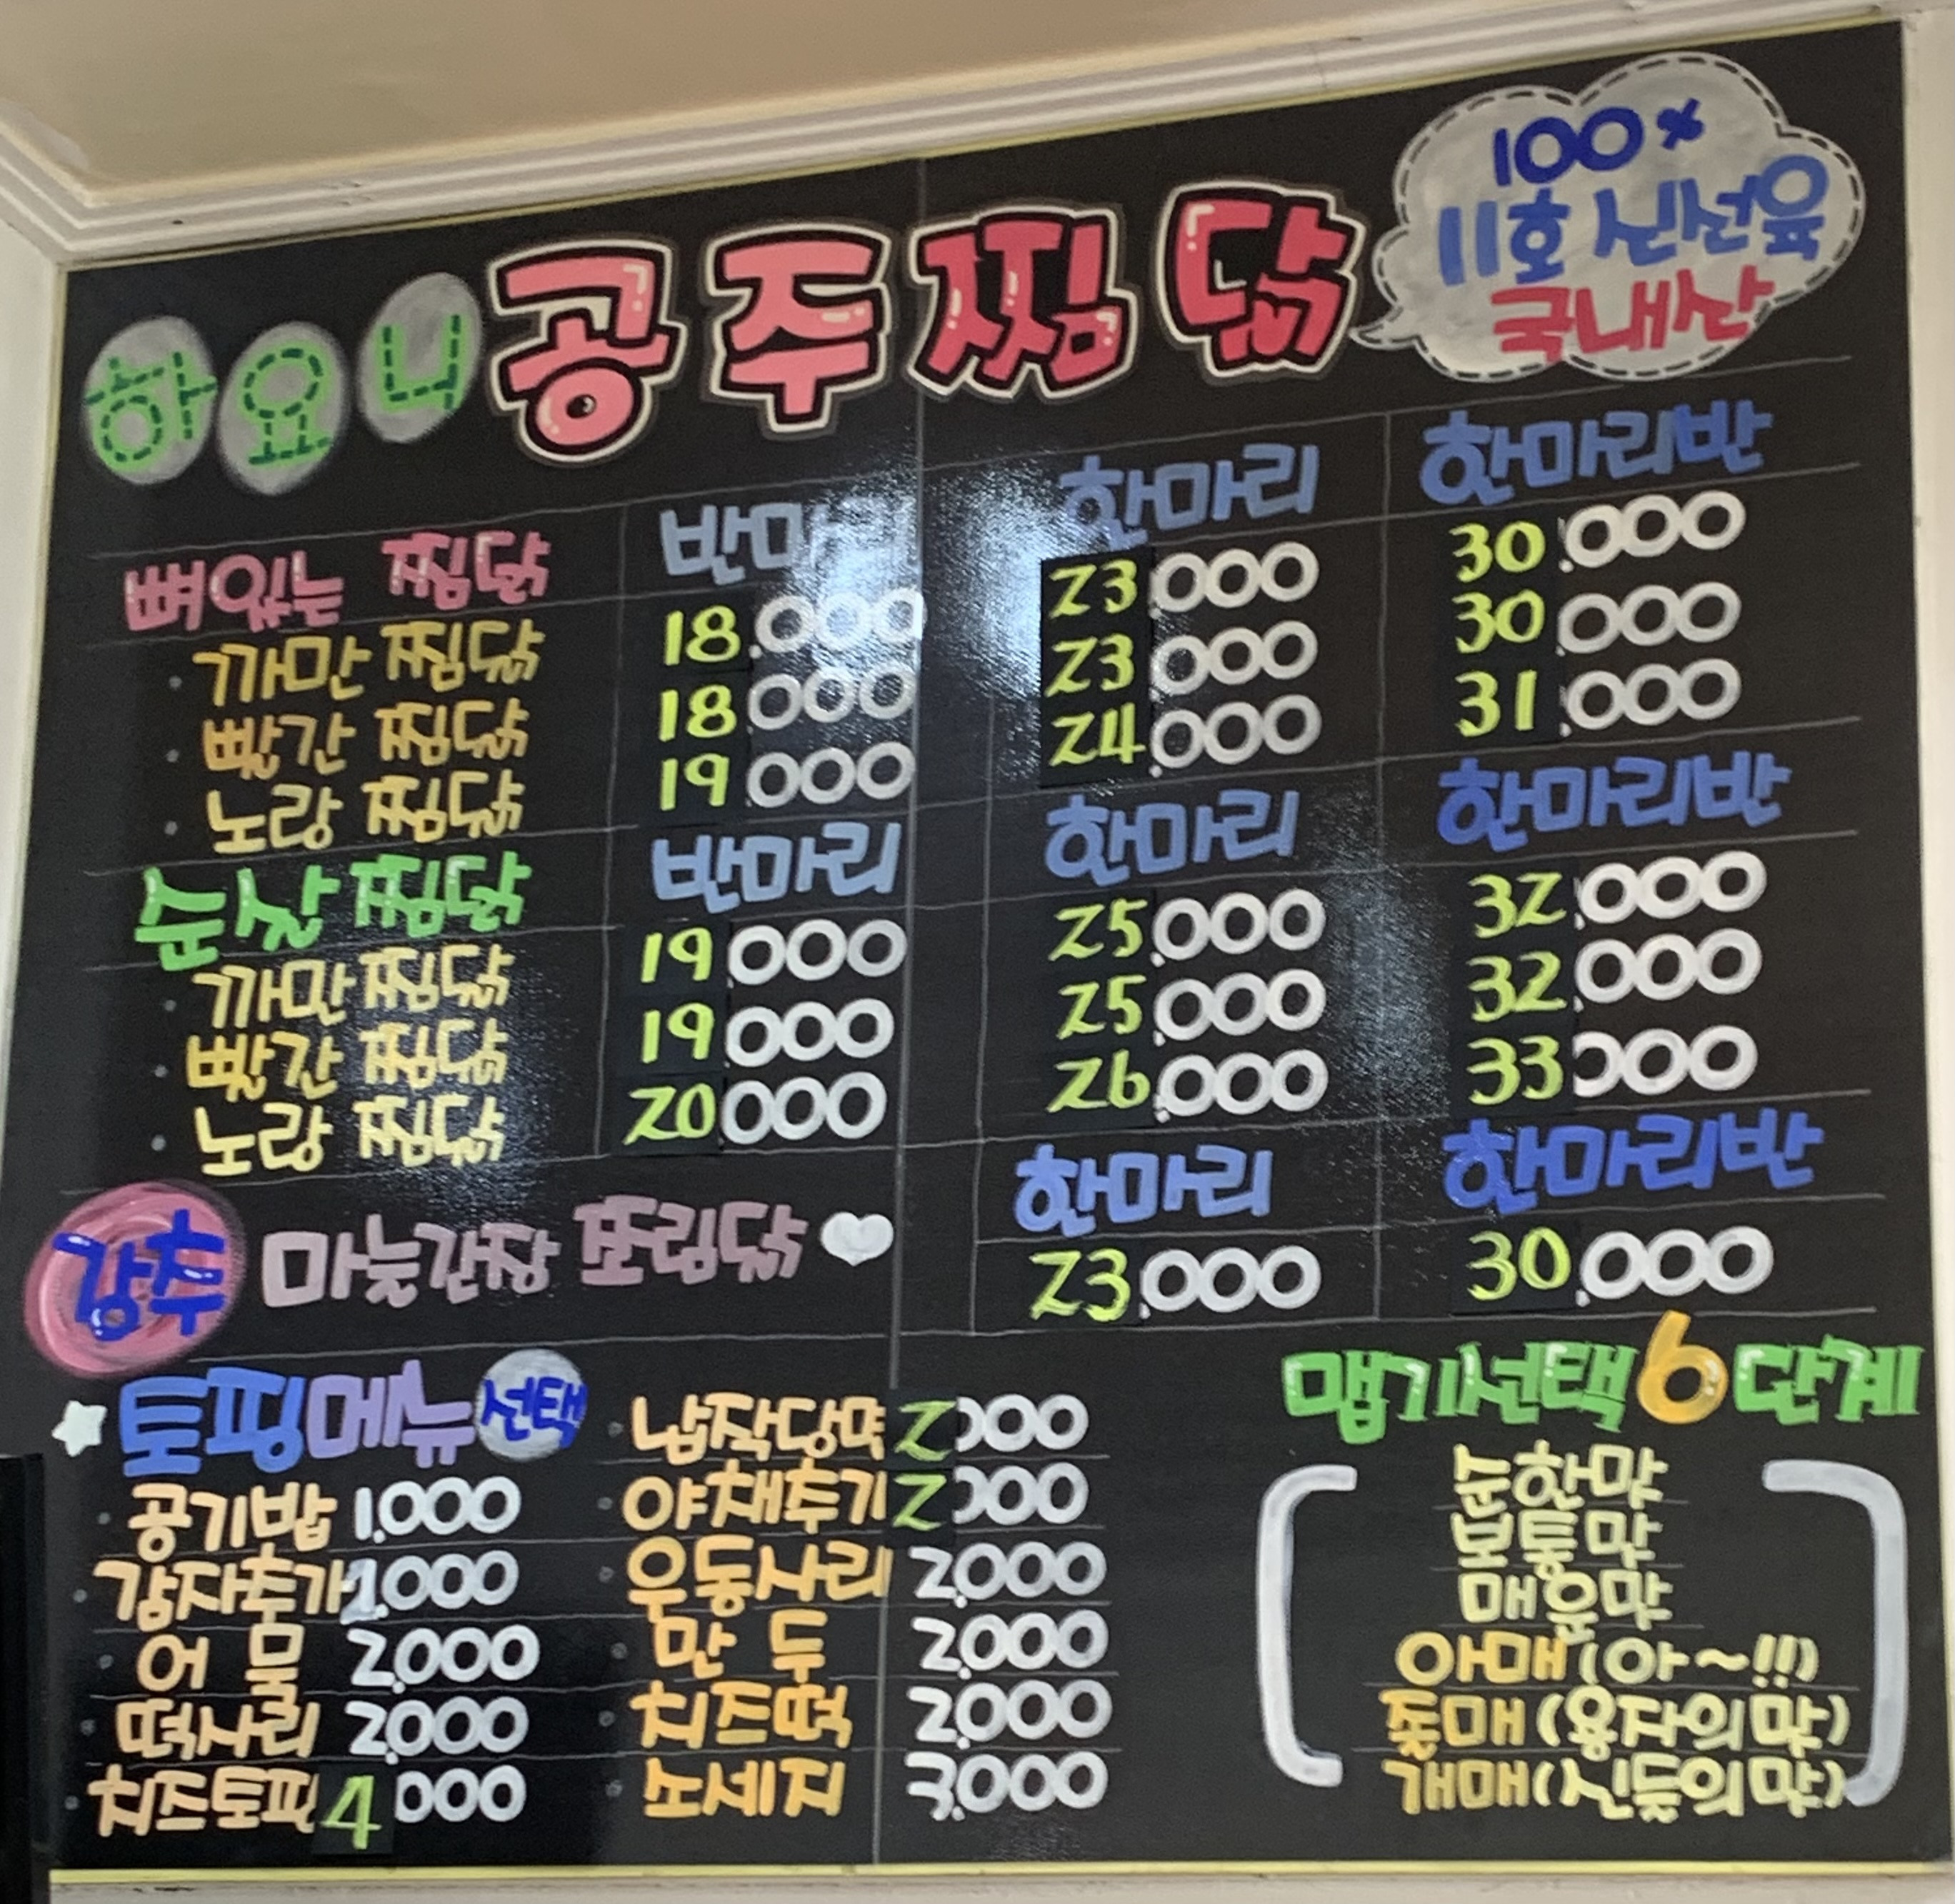 하요니 공주찜닭
100%
11호 신선육
국내산
뼈있는 찜닭 반마리 한마리 한마리반
· 까만 찜닭 18,000 23,000 30,000
· 빨간 찜닭 18,000 23,000 30,000
· 노랑 찜닭 19,000 24,000 31,000
순살 찜닭 반마리 한마리 한마리반
· 까만 찜닭 19,000 25,000 32,000
· 빨간 찜닭 19,000 25,000 32,000
· 노랑 찜닭 20,000 26,000 33,000
한마리 한마리반
강추 마늘간장 쪼림닭 23,000 30,000
토핑메뉴 선택
· 공기밥 1,000
· 감자추가 1,000
· 어묵 2,000
· 떡사리 2,000
· 치즈토핑 4,000
· 납작당면 2,000
· 야채추가 2,000
· 우동사리 2,000
· 만두 2,000
· 치즈떡 2,000
· 소세지 3,000
맵기선택 6단계
순한맛
보통맛
매운맛
아매 (아~!!)
좃매 (용자의 맛)
개매 (신들의 맛)